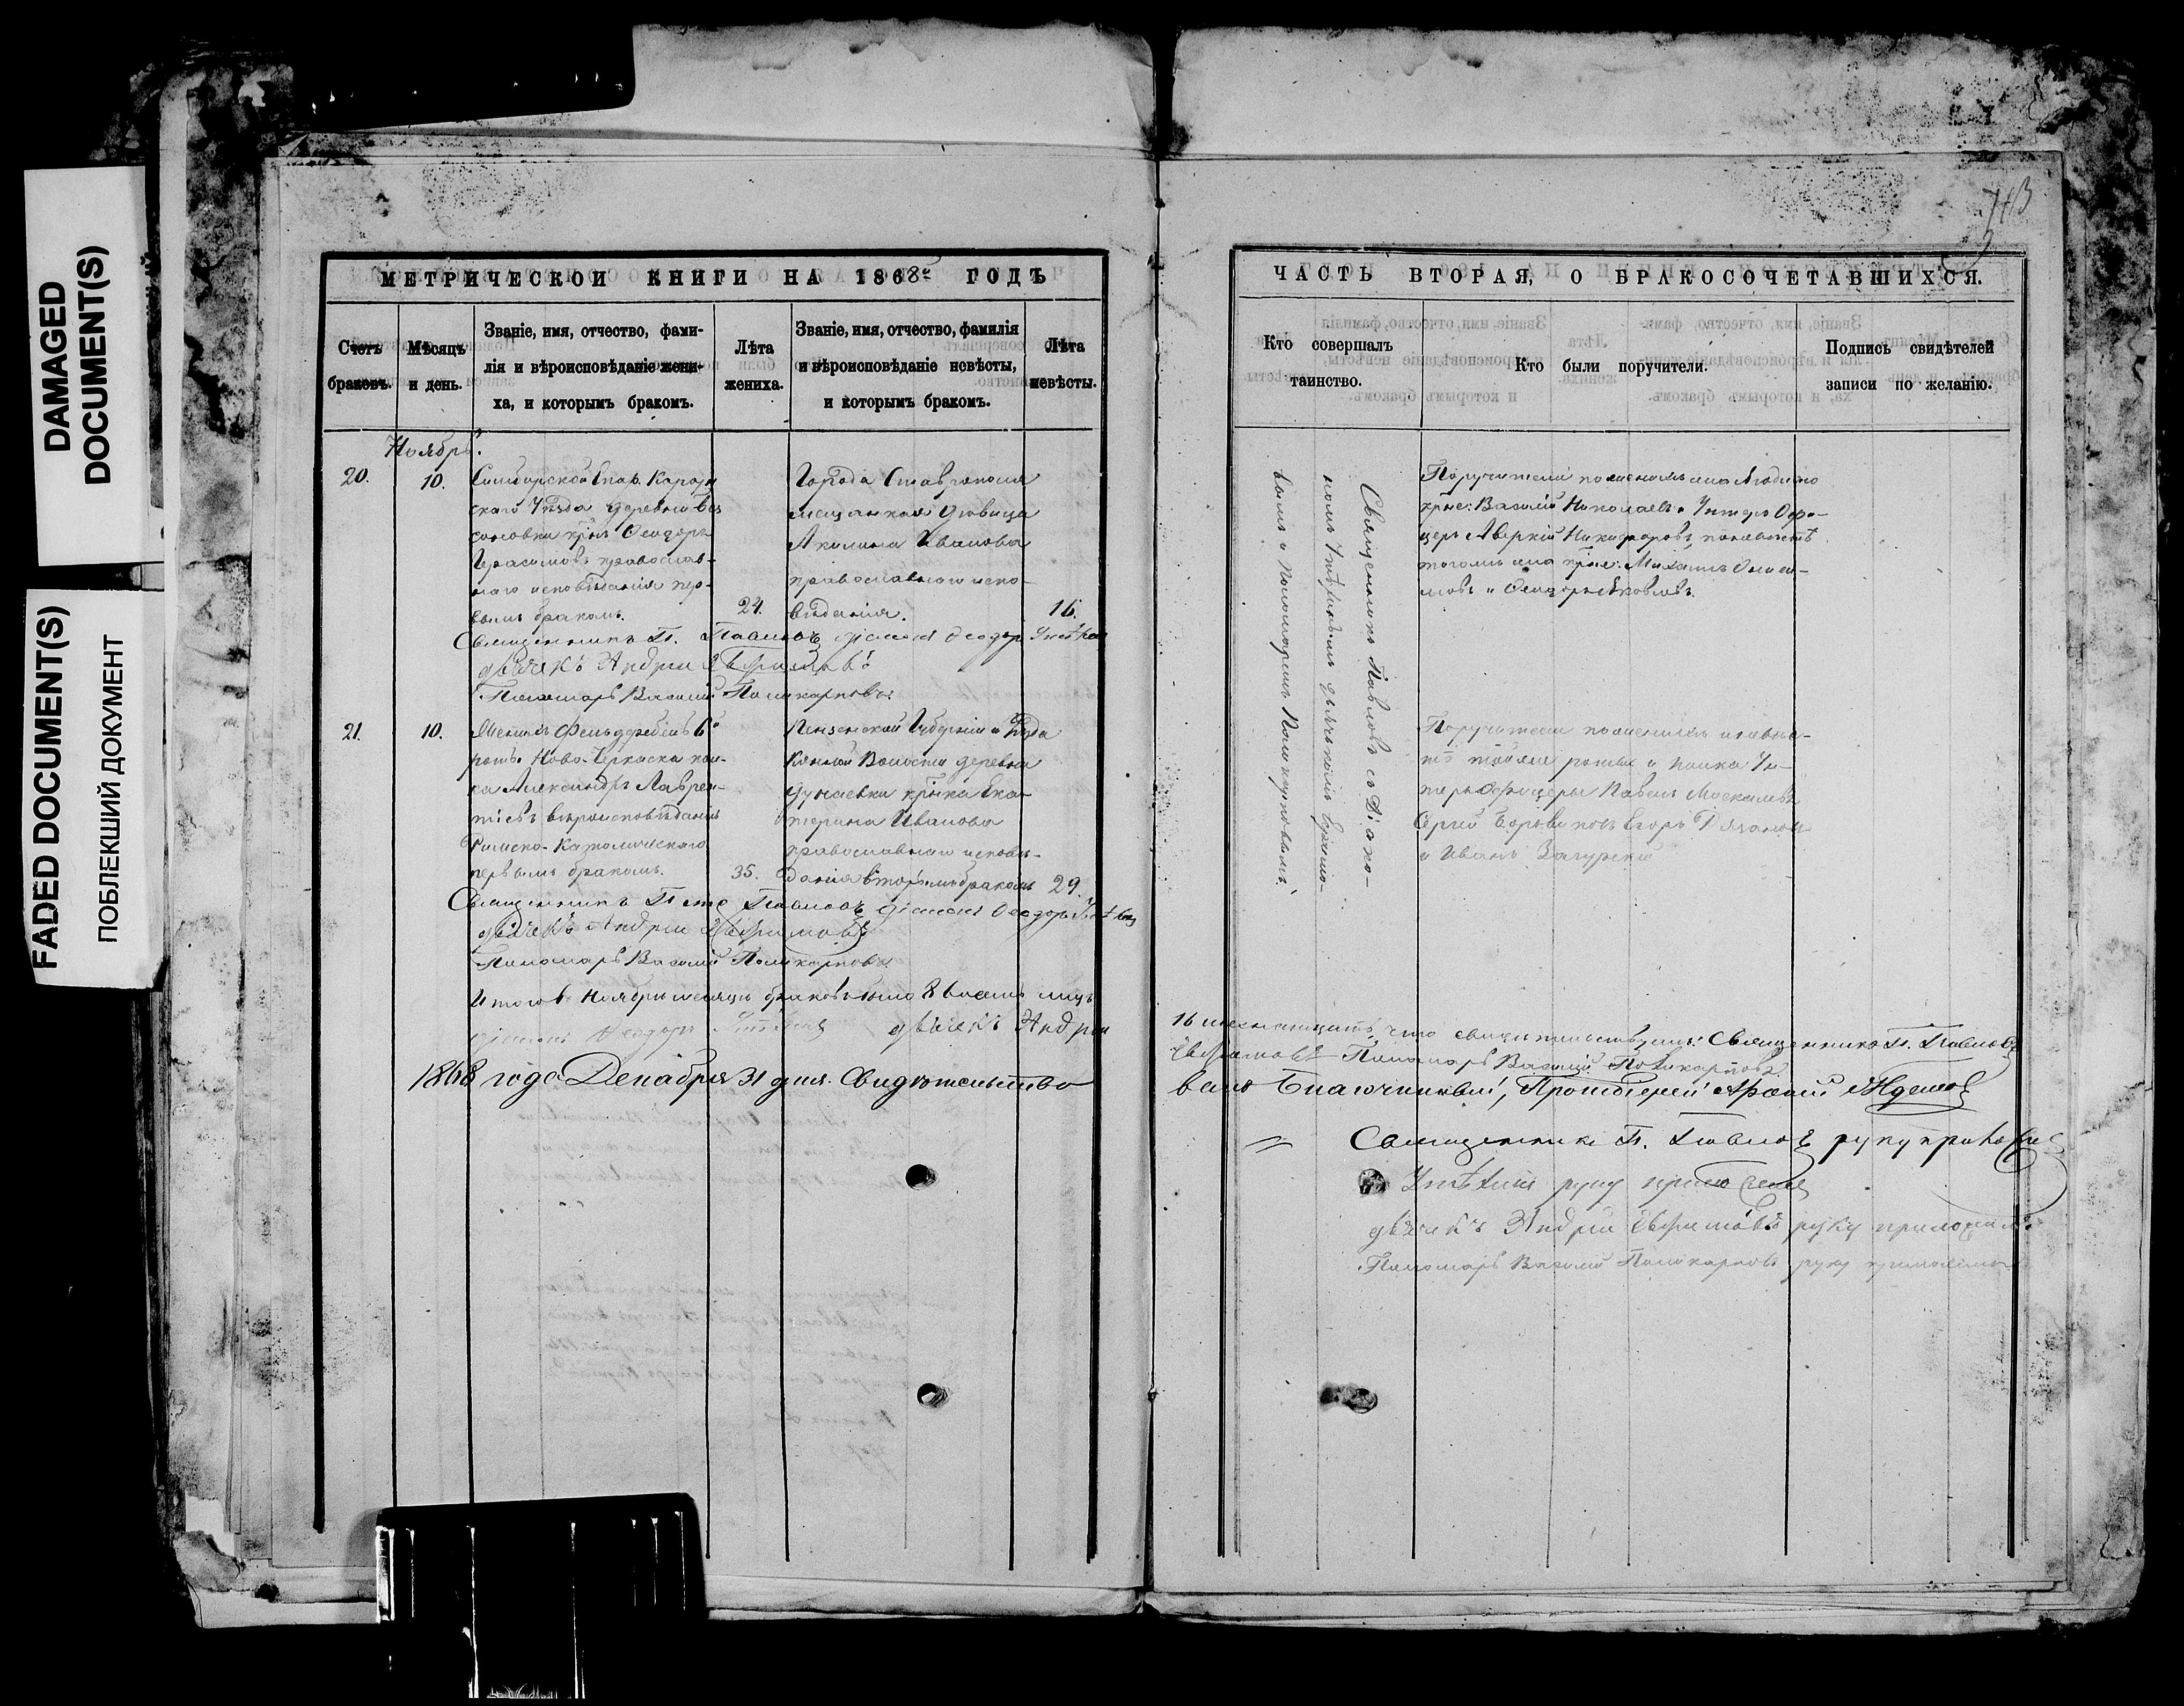 DAMAGED
DOCUMENT(S)
FADED DOCUMENT(S)
ПОБЛЕКШИЙ ДОКУМЕНТ
МЕТРИЧЕСКОЙ КНИГИ НА 1868й ГОДЪ
Счетъ
браковъ.
Мѣсяцъ
и день.
Званіе, имя, отчество, фами-
лія и вѣроисповѣданіе жени-
ха, и которымъ бракомъ.
Лѣта
жениха.
Званіе, имя, отчество, фамилія
и вѣроисповѣданіе невѣсты,
и которымъ бракомъ.
Лѣта
невѣсты.
Ноябрь.
20.
10.
Симбирской Епар. Карсун
скаго Уѣзда деревни
крнъ Ѳеодоръ
Герасимовъ православ-
наго исповѣданія пер-
вымъ бракомъ.
24.
Города Ставрополя
мещанская дѣвица
Акилина Иванова
православнаго испо-
вѣданія.
16.
Священникъ П. Павловъ діаконъ Ѳеодоръ
дьячекъ Андрей Ефимовъ
Пономарь Василий Поликарповъ
21.
10.
роты Ново-Черкаска пол-
ка Александръ Лаврен-
тіевъ вѣроисповѣданія
Римско-Католическаго
первымъ бракомъ.
35.
Пензенской Губерніи и Уѣзда
Волости деревни
Дунаевки крнка Ека-
терина Иванова
православнаго исповѣ-
данія вторымъ бракомъ
29.
Священникъ Павловъ діаконъ Ѳеодоръ
дьячекъ Андрей Ефимовъ
Пономарь Василий Поликарповъ
Итого в Ноябрѣ месяцѣ браковъ было 8 восемь лицъ
діаконъ Ѳеодоръ дьячекъ Андрей
1868 года Декабря 31 дня. Свидѣтельство
743
ЧАСТЬ ВТОРАЯ, О БРАКОСОЧЕТАВШИХСЯ.
Кто совершалъ
таинство.
Кто были поручители.
Подпись свидѣтелей
записи по желанію.
Священникъ Павловъ съ Діако-
номъ дьячкомъ Ефимо-
вымъ и Пономаремъ Поликарповымъ.
Поручители по женихѣ
крнъ: Василій Николаевъ и Унтеръ Офи-
церъ Аверкій Никифоровъ, по невѣстѣ
крнъ: Михаилъ
и Ѳеодоръ Яковлевъ.
Поручители по женихѣ и невѣс-
тѣ тойже роты и полка Ун-
теръ Офицеры Павелъ Москалевъ
Сергѣй Егоръ
и Иванъ Загурскій
16 шестнадцать, что свидѣтельствуемъ: Священникъ П. Павловъ
Ефимовъ Пономарь Василий Поликарповъ
валъ Благочинный, Протоіерей
Священникъ П. Павловъ руку приложилъ
руку приложилъ
дьячекъ Андрей Ефимовъ руку приложилъ
Пономарь Василий Поликарповъ руку приложилъ